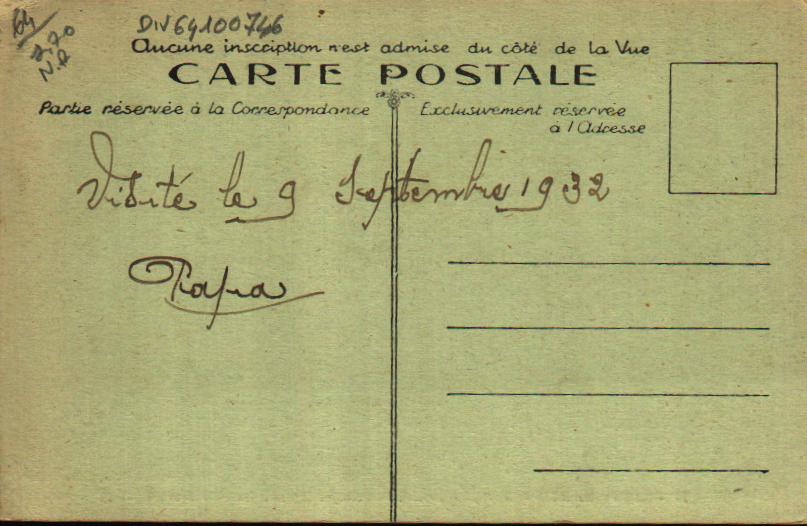 64
DIV64100746
2,70
N.R
Aucune inscription n'est admise du côté de la Vue
CARTE POSTALE
Partie réservée à la Correspondance
Exclusivement réservée
à l'Adresse
Visité le 9 Septembre 1932
Papa